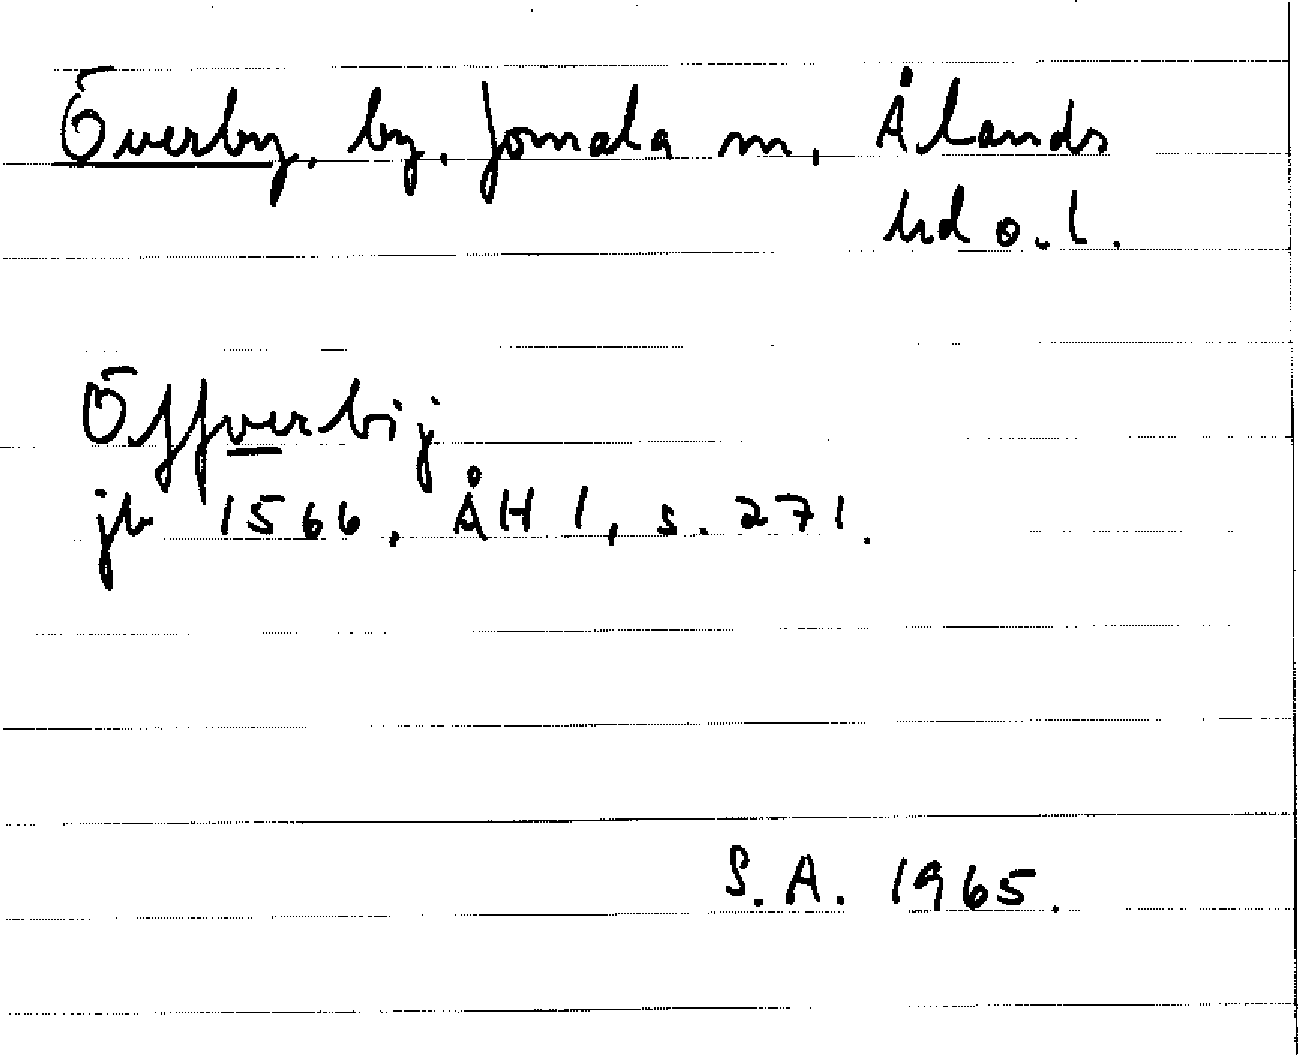 Överby, by, Jomala m, Ålands
hd o. l.
Öffverbij
jb 1566, ÅH 1, s. 271.
S.A. 1965.